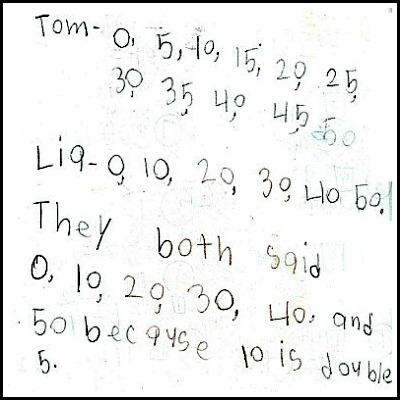 Tom- 0, 5, 10, 15, 20, 25,
30, 35, 40, 45, 50
Lia- 0, 10, 20, 30, 40 50.
They both said
0, 10, 20, 30, 40, and
50 because 10 is double
5.